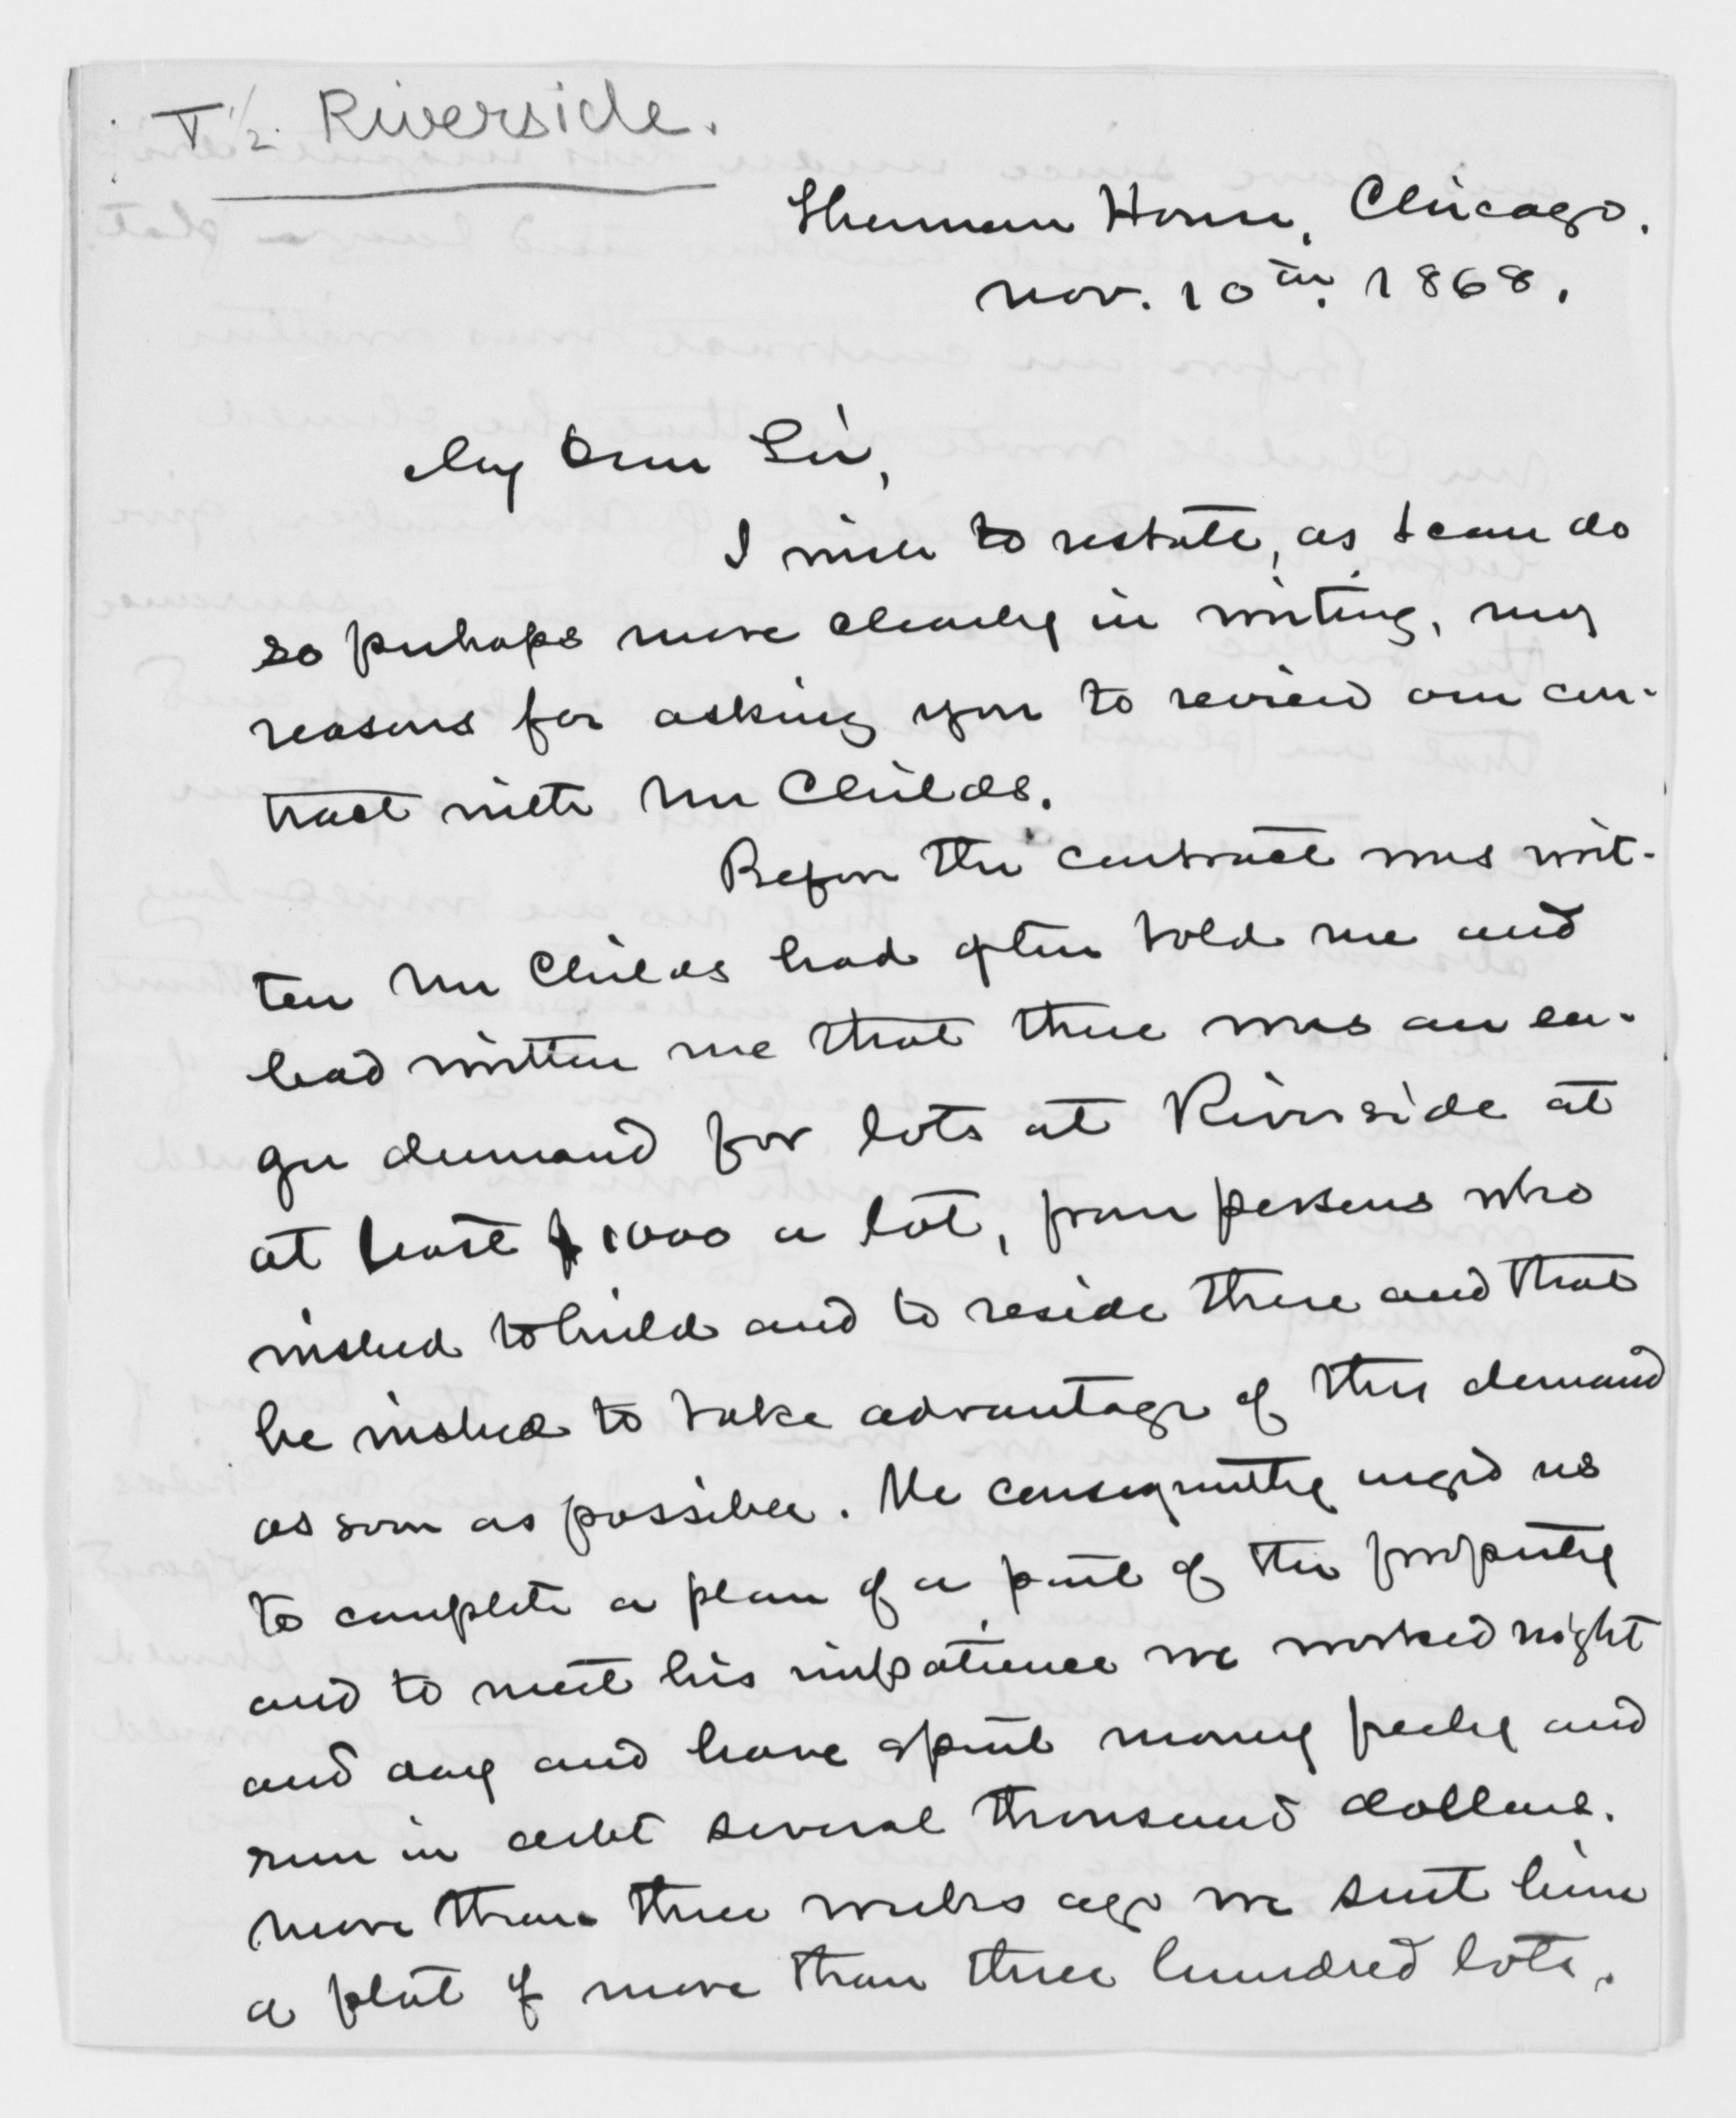 V 1/2. Riverside.
Sherman House, Chicago.
Nov. 10th. 1868.
My Dear Sir,
I wish to restate, as I can do
so perhaps more clearly in writing, my
reasons for asking you to review our con-
tract with Mr Childs.
Before the contract was writ-
ten Mr Childs had often told me and
had written me that there was an ea-
ger demand for lots at Riverside at
at least $1000 a lot, from persons who
wished to build and to reside there and that
he wished to take advantage of this demand
as soon as possible. He consequently urged us
to complete a plan of a part of the property
and to meet his impatience we worked night
and day and have spent money freely and
run in debt several thousand dollars.
More than three weeks ago we sent him
a plat of more than three hundred lots.